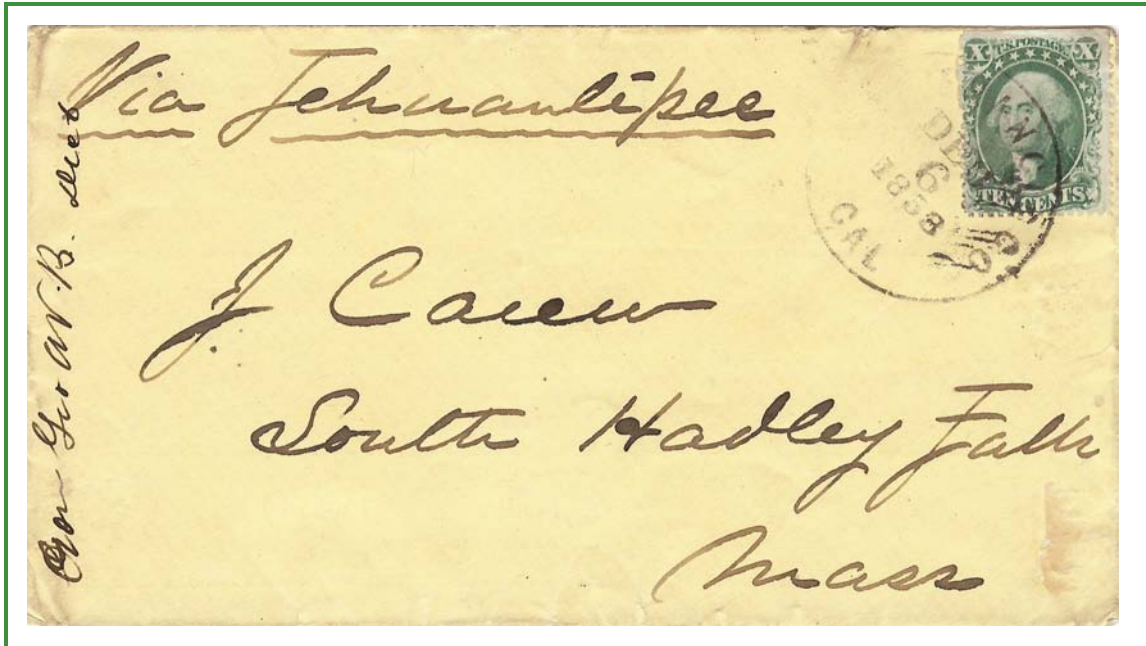 Via Tehuantepec
X U.S. POSTAGE X
TEN CENTS.
DEC
6
1858
CAL
J Carew
South Hadley Falls
Mass
Geo W. B.